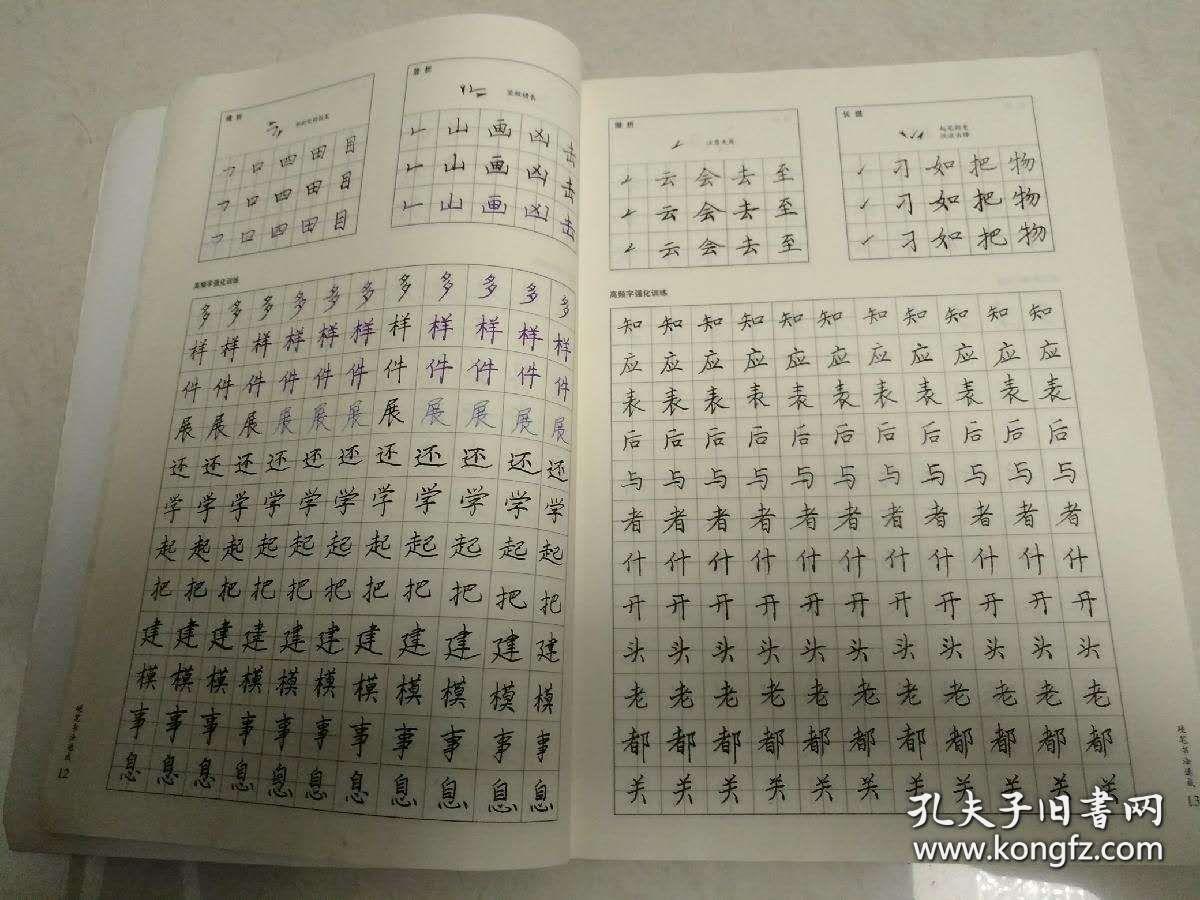 横折
㇕ 口 四 田 目
㇕ 口 四 田 目
㇕ 口 四 田 目
竖折
竖短横长
㇗ 山 画 凶 击
㇗ 山 画 凶 击
㇗ 山 画 凶 击
高频字强化训练
多 多 多 多 多 多 多 多 多 多 多
样 样 样 样 样 样 样 样 样 样 样
件 件 件 件 件 件 件 件 件 件 件
展 展 展 展 展 展 展 展 展 展 展
还 还 还 还 还 还 还 还 还 还 还
学 学 学 学 学 学 学 学 学 学 学
起 起 起 起 起 起 起 起 起 起 起
把 把 把 把 把 把 把 把 把 把 把
建 建 建 建 建 建 建 建 建 建 建
模 模 模 模 模 模 模 模 模 模 模
事 事 事 事 事 事 事 事 事 事 事
息 息 息 息 息 息 息 息 息 息 息
硬笔书法速成
12
撇折
注意夹角
㇜ 云 会 去 至
㇜ 云 会 去 至
㇜ 云 会 去 至
长提
㇀ 刁 如 把 物
㇀ 刁 如 把 物
㇀ 刁 如 把 物
高频字强化训练
知 知 知 知 知 知 知 知 知 知 知
应 应 应 应 应 应 应 应 应 应 应
表 表 表 表 表 表 表 表 表 表 表
后 后 后 后 后 后 后 后 后 后 后
与 与 与 与 与 与 与 与 与 与 与
者 者 者 者 者 者 者 者 者 者 者
什 什 什 什 什 什 什 什 什 什 什
开 开 开 开 开 开 开 开 开 开 开
头 头 头 头 头 头 头 头 头 头 头
老 老 老 老 老 老 老 老 老 老 老
都 都 都 都 都 都 都 都 都 都 都
关 关 关 关 关 关 关 关 关 关 关
硬笔书法速成
13
孔夫子旧书网
www.kongfz.com